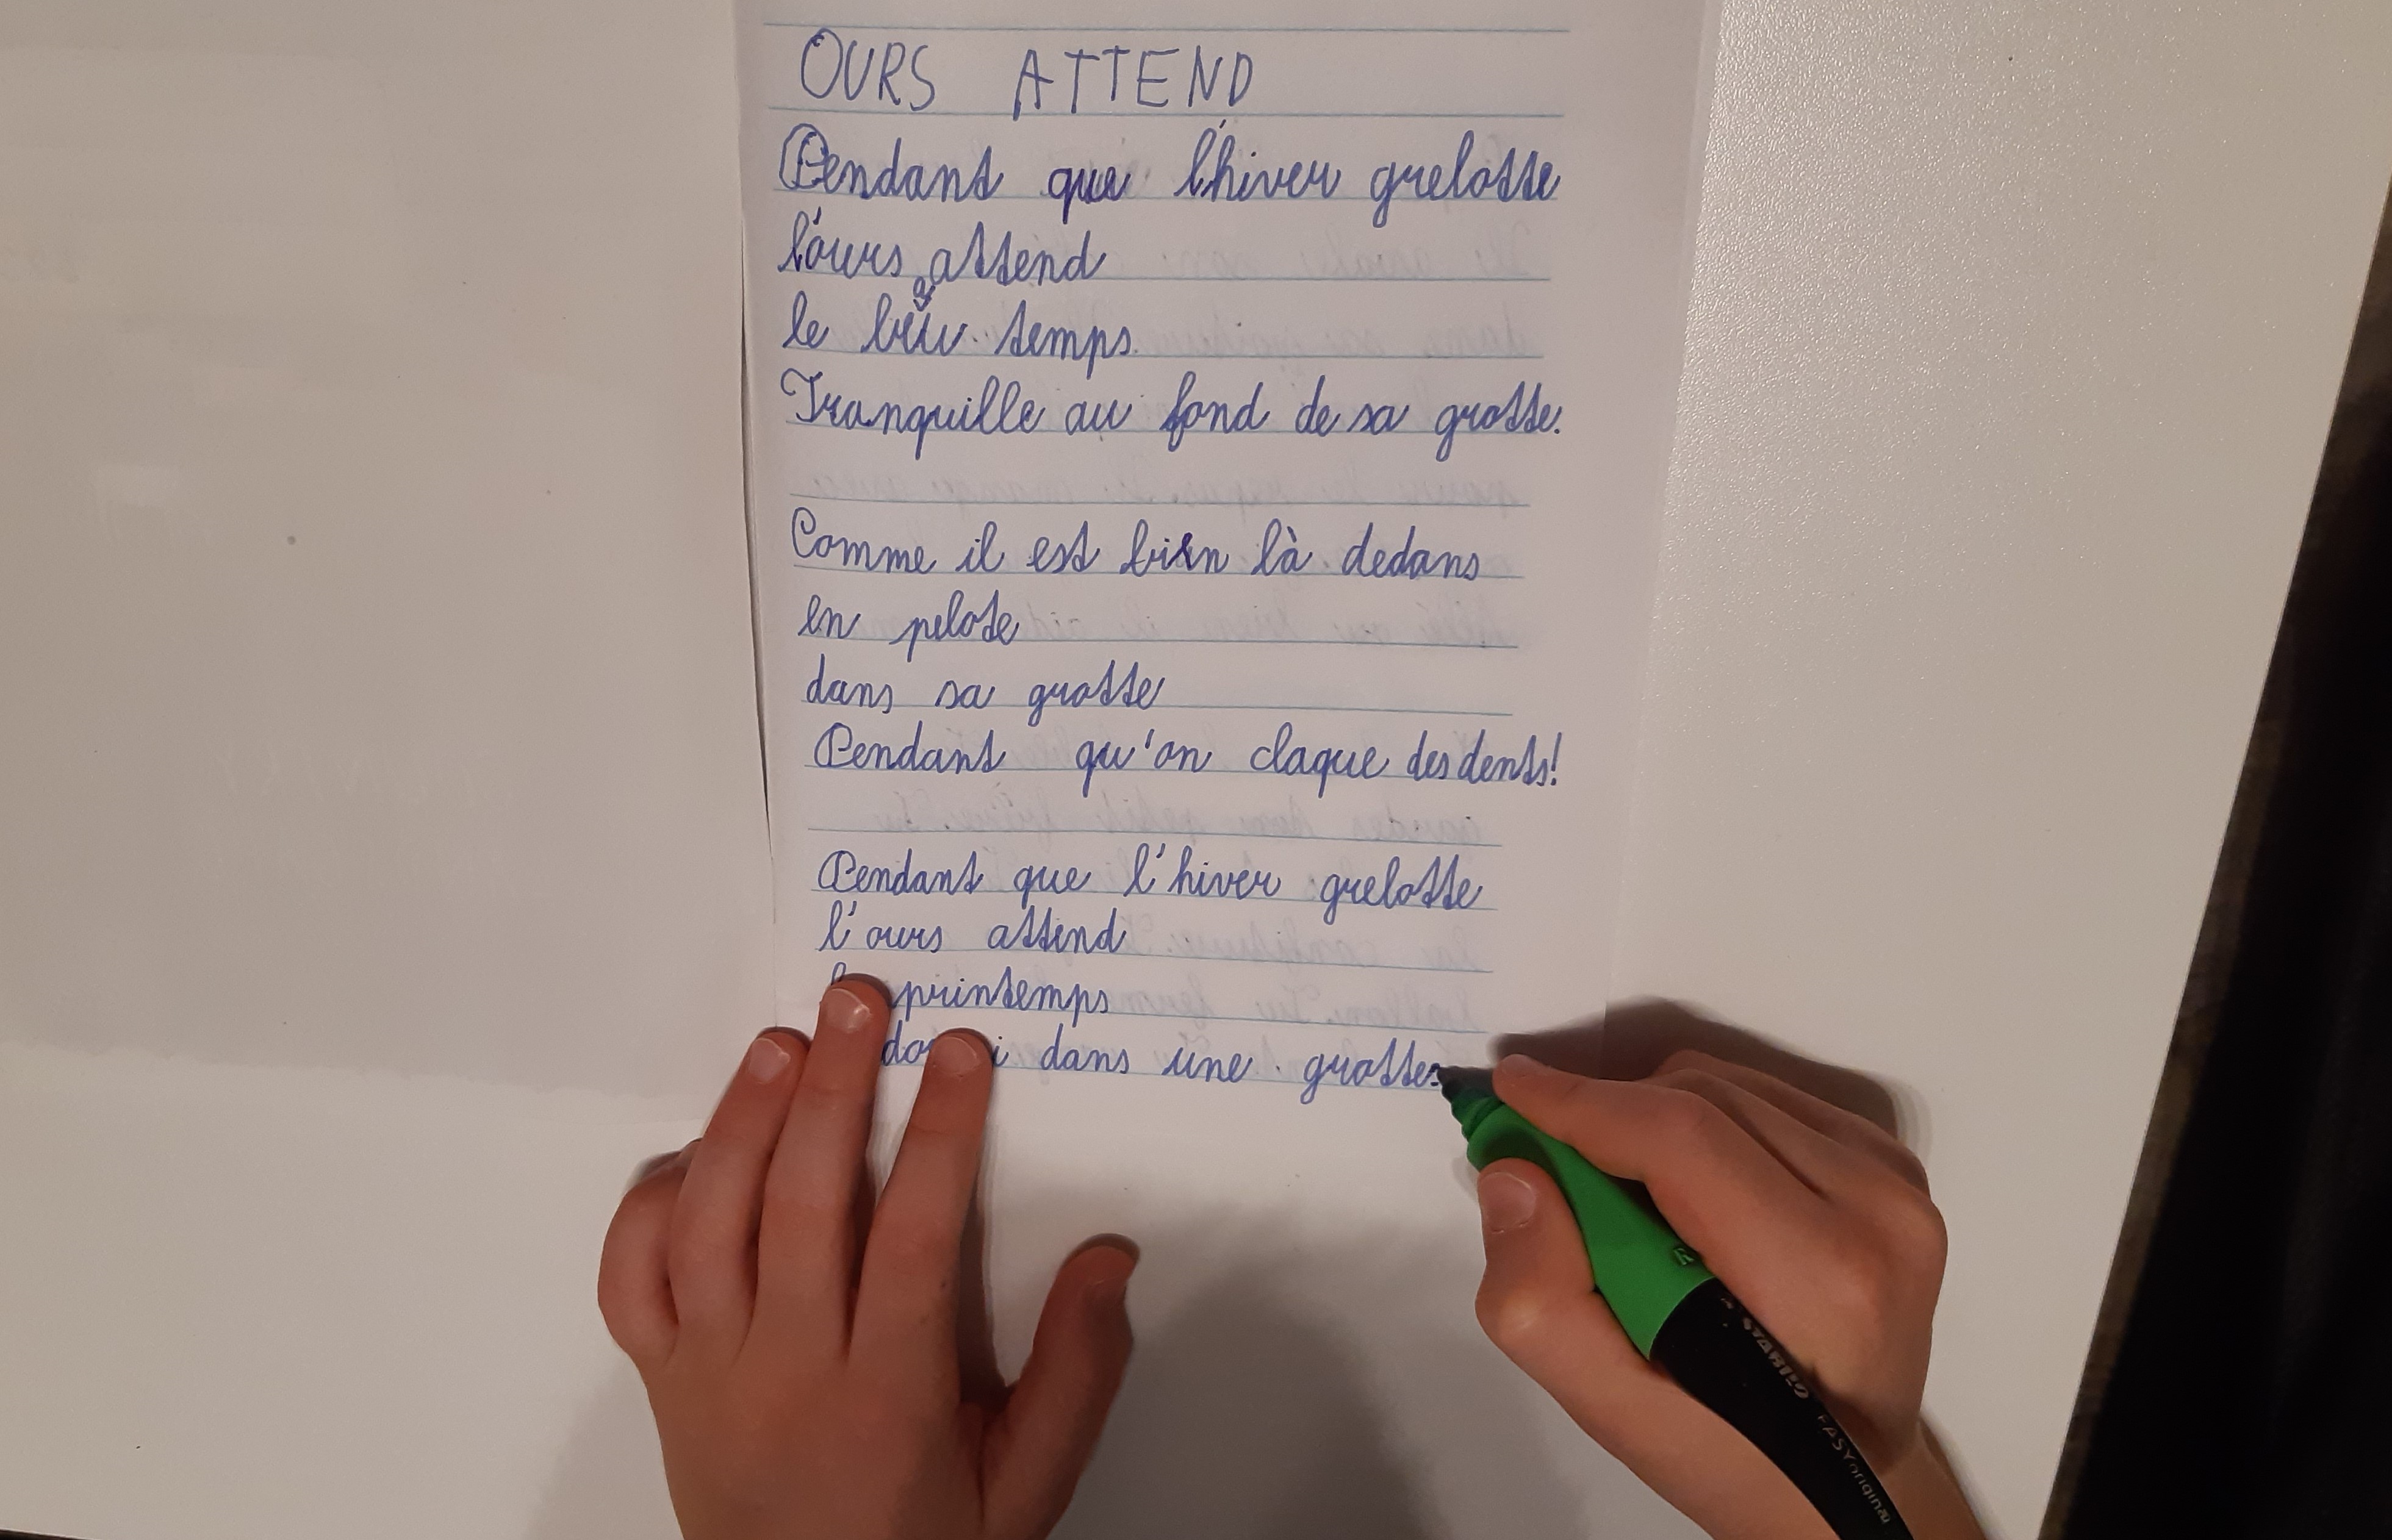 OURS ATTEND
Pendant que l'hiver grelotte
l'ours attend
le beau temps.
Tranquille au fond de sa grotte.
Comme il est bien là dedans
en pelote
dans sa grotte
Pendant qu'on claque des dents!
Pendant que l'hiver grelotte
l'ours attend
printemps
dans une grotte
STABILO EASYoriginal